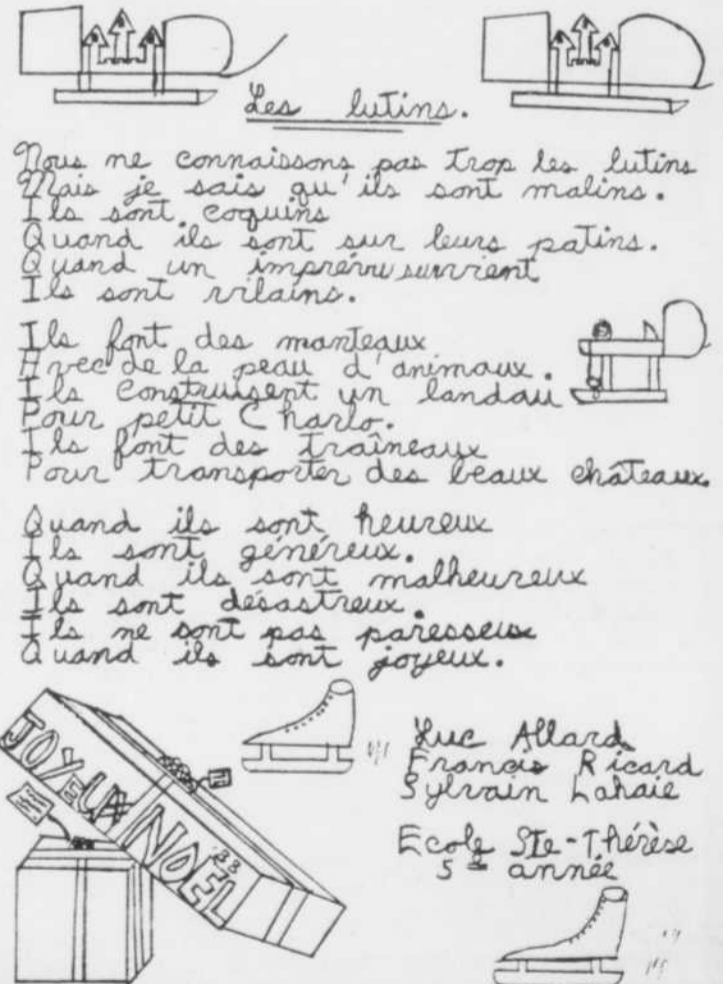 Les lutins.
Nous ne connaissons pas trop les lutins
Mais je sais qu'ils sont malins.
Ils sont coquins
Quand ils sont sur leurs patins.
Quand un imprévu survient
Ils sont vilains.
Ils font des manteaux
Avec de la peau d'animaux.
Ils construisent un landau
Pour petit Charlo.
Ils font des traîneaux
Pour transporter des beaux châteaux.
Quand ils sont heureux
Ils sont généreux.
Quand ils sont malheureux
Ils sont désastreux.
Ils ne sont pas paresseux
Quand ils sont joyeux.
JOYEUX NOËL '88
Luc Allard
Francis Ricard
Sylvain Lahaie
Ecole Ste-Thérèse
5e année